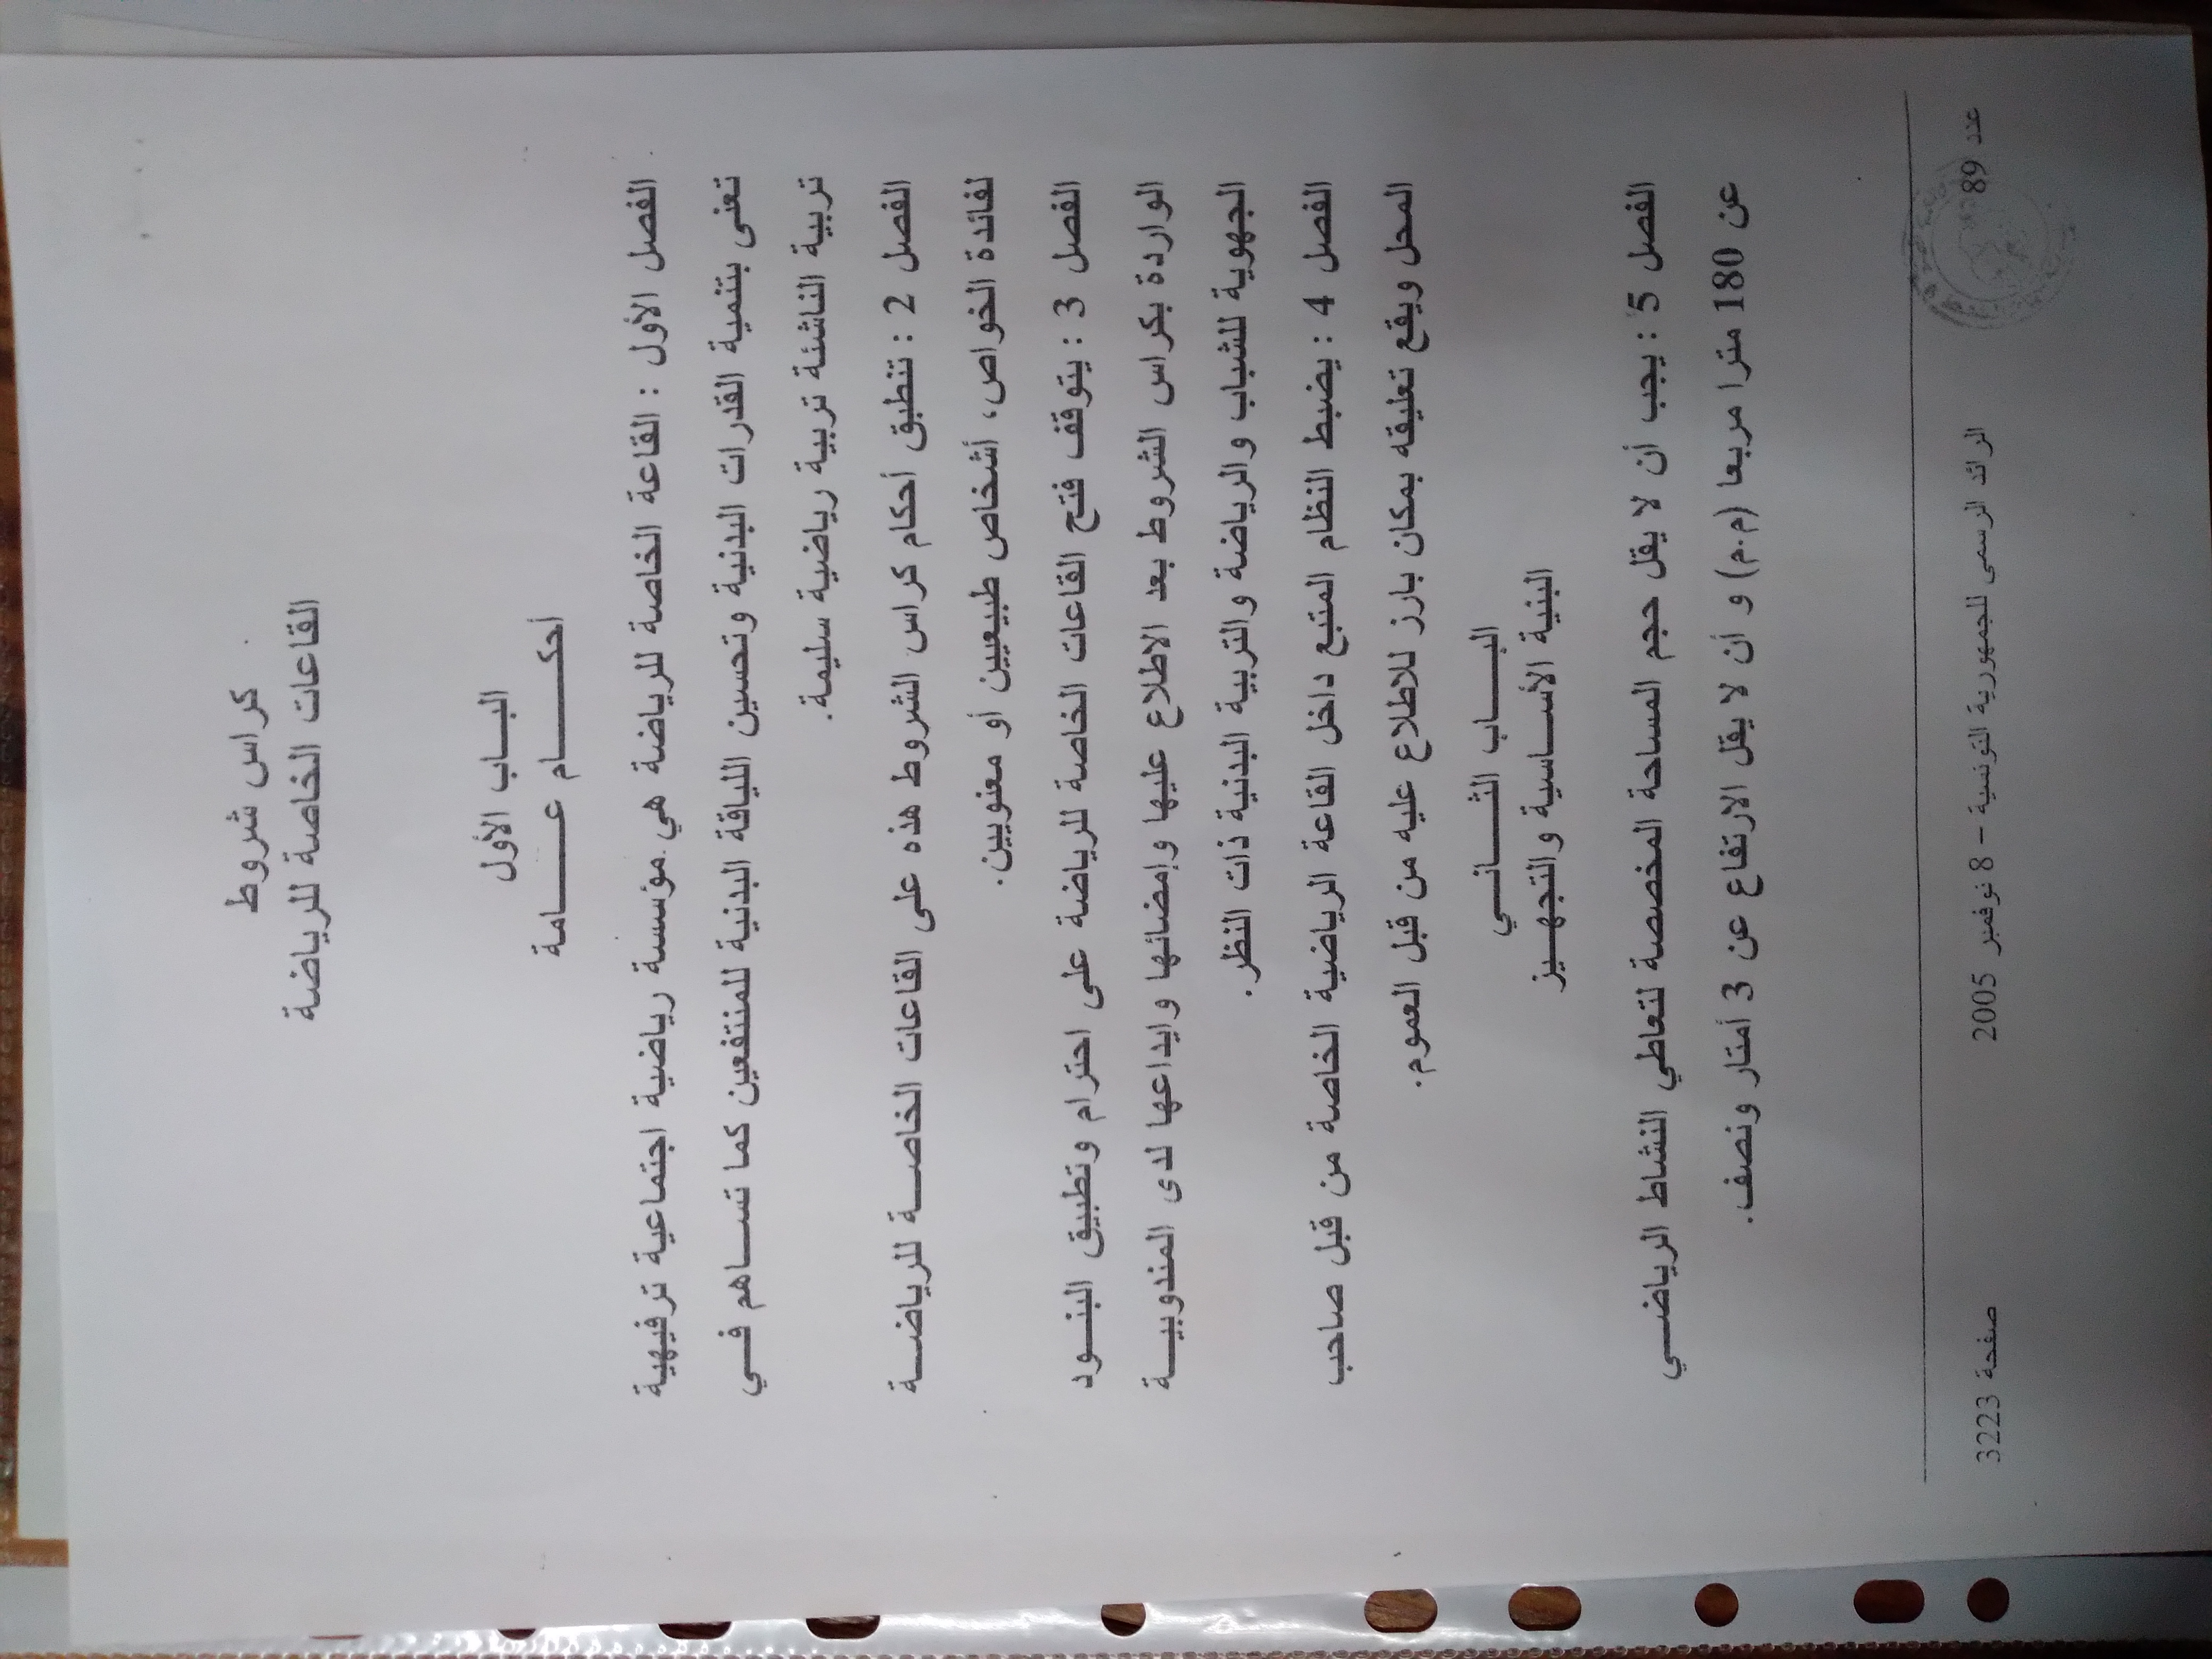 كراس شروط
القاعات الخاصة للرياضة
البـــاب الأول
أحكـــــام عـــــامة
الفصل الأول : القاعة الخاصة للرياضة هي مؤسسة رياضية اجتماعية ترفيهية
تعنى بتنمية القدرات البدنية وتحسين اللياقة البدنية للمنتفعين كما تســـاهم فـــي
تربية الناشئة تربية رياضية سليمة.
الفصل 2 : تنطبق أحكام كراس الشروط هذه على القاعات الخاصـــة للرياضـــة
لفائدة الخواص، أشخاص طبيعيين أو معنويين.
الفصل 3 : يتوقف فتح القاعات الخاصة للرياضة على احترام وتطبيق البنـــود
الواردة بكراس الشروط بعد الاطلاع عليها وإمضائها وايداعها لدى المندوبيـــة
الجهوية للشباب والرياضة والتربية البدنية ذات النظر.
الفصل 4 : يضبط النظام المتبع داخل القاعة الرياضية الخاصة من قبل صاحب
المحل ويقع تعليقه بمكان بارز للاطلاع عليه من قبل العموم.
البـــاب الثـــانـي
البنية الأســـاسية والتجهـــيز
الفصل 5 : يجب أن لا يقل حجم المساحة المخصصة لتعاطي النشاط الرياضـــي
عن 180 مترا مربعا (م.م) و أن لا يقل الارتفاع عن 3 أمتار ونصف.
عدد 89 الرائد الرسمي للجمهورية التونسية – 8 نوفمبر 2005 صفحة 3223